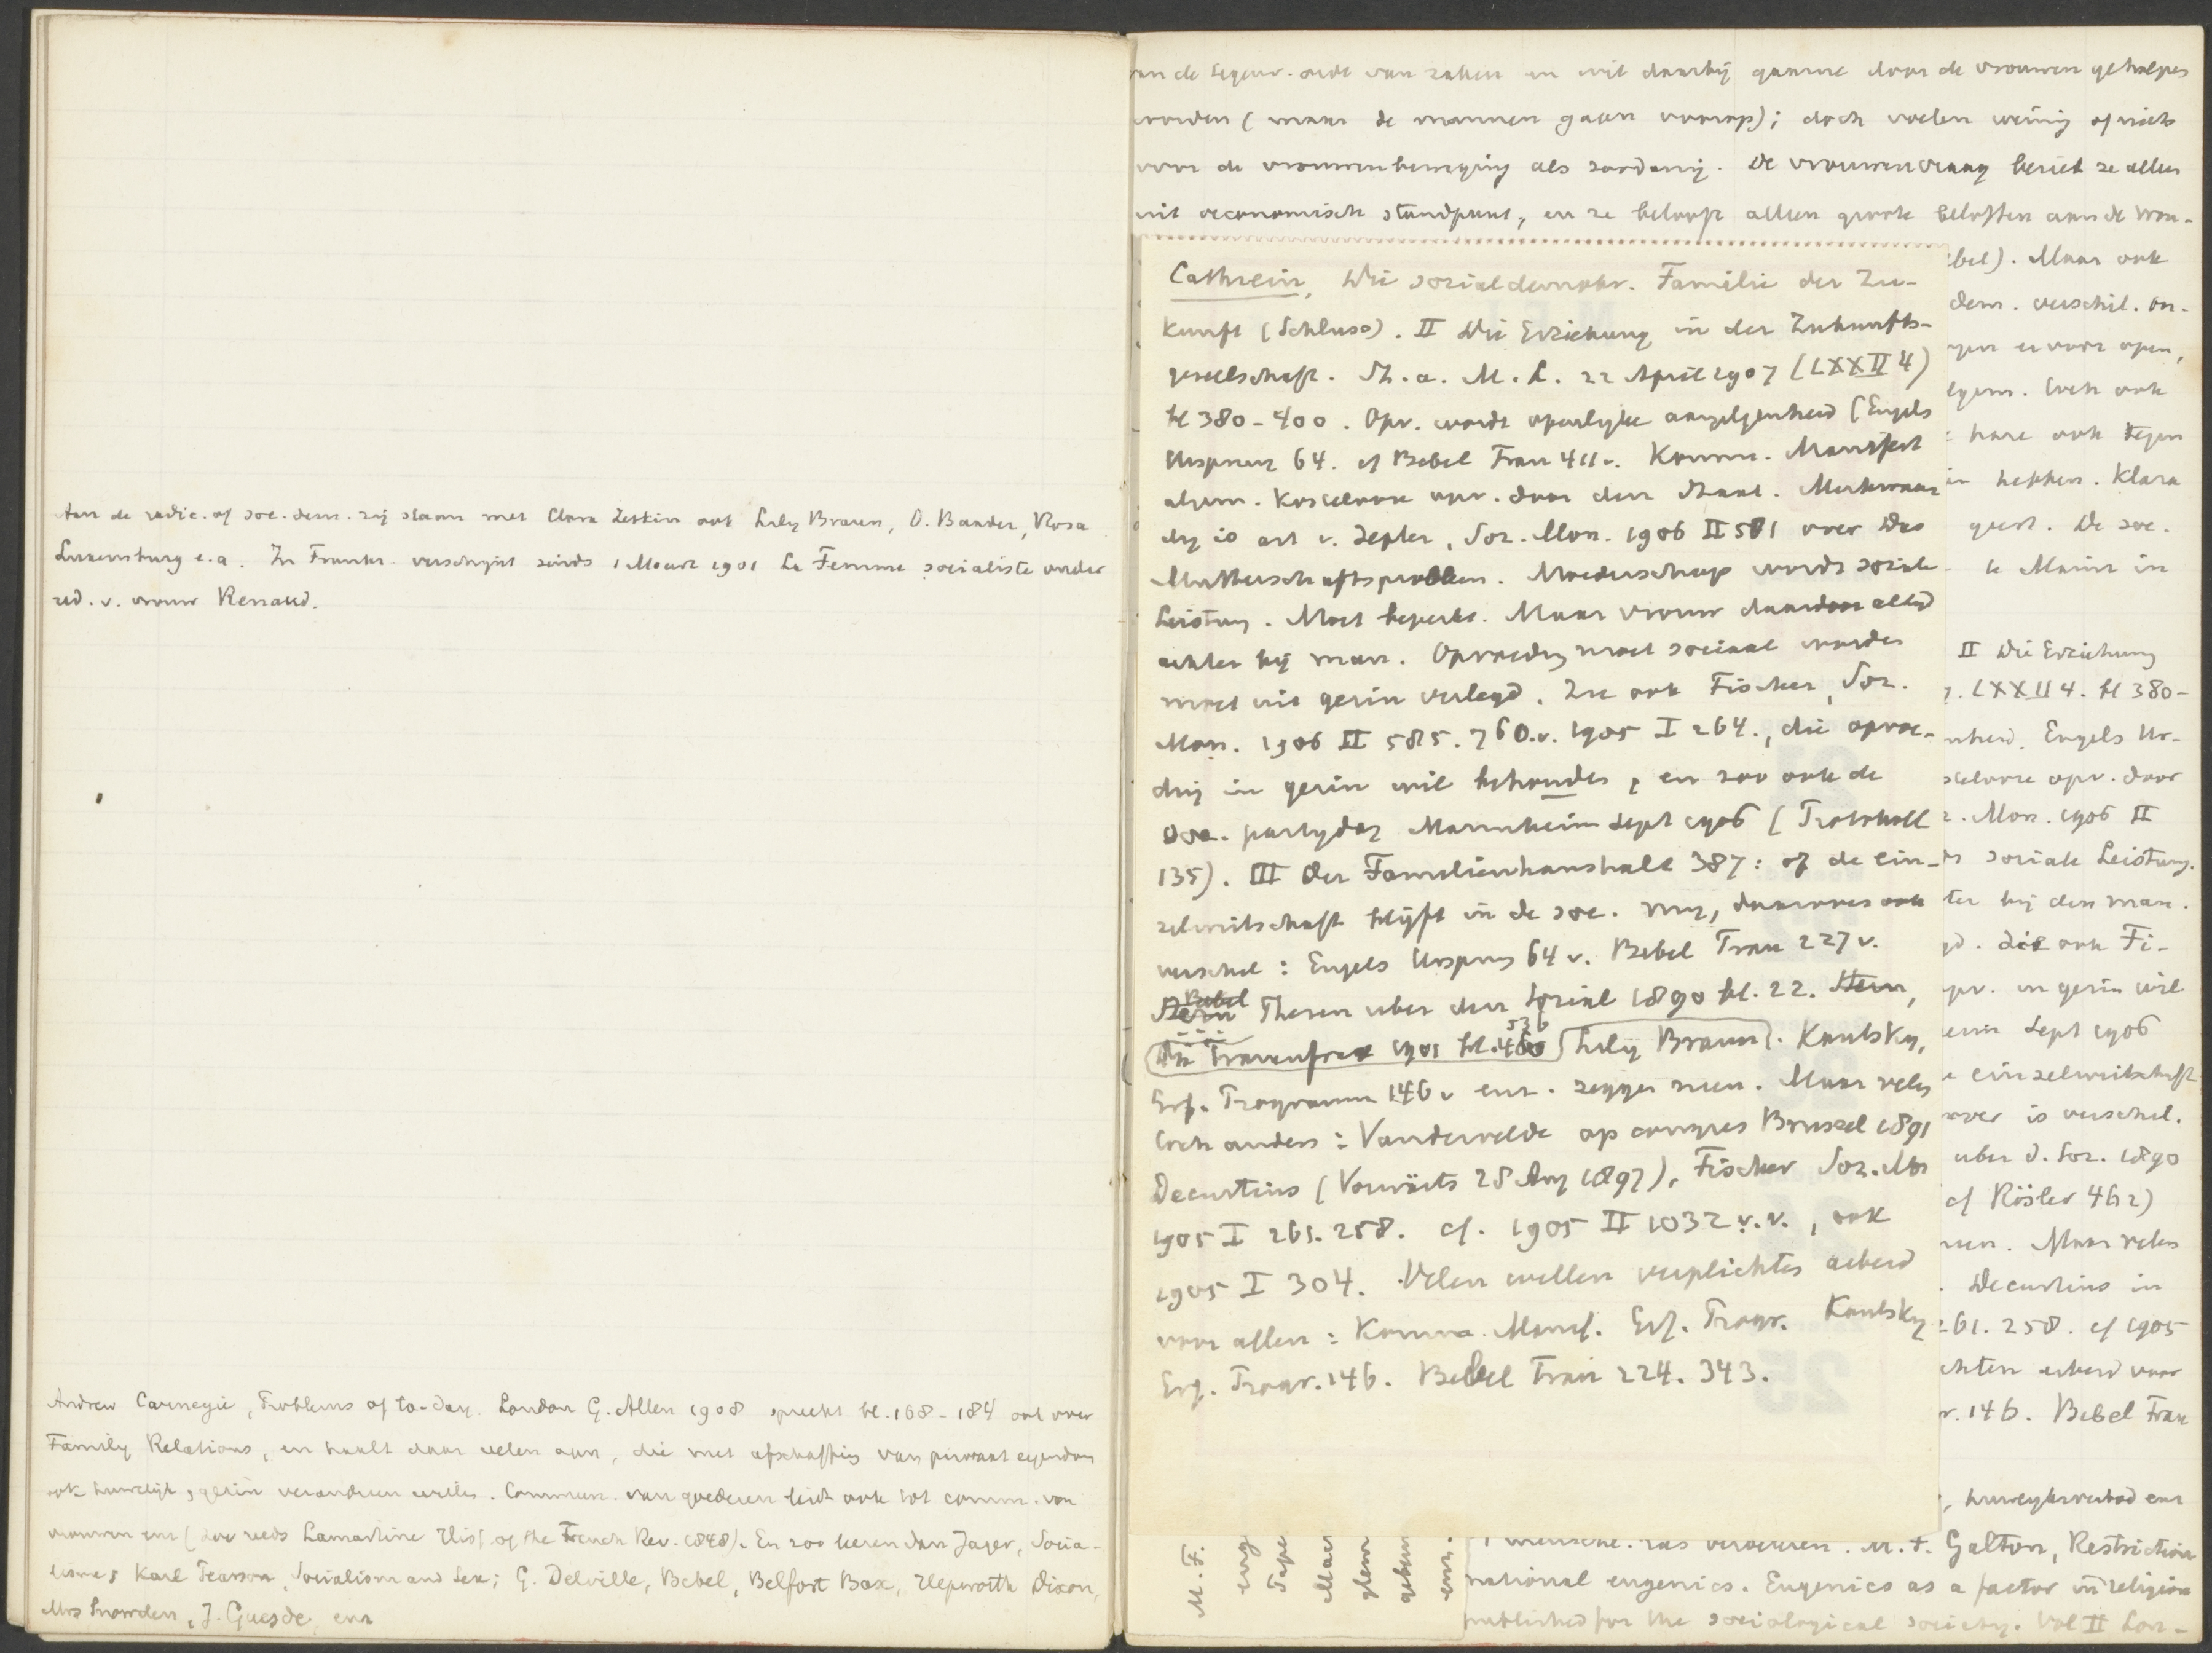 Aan de radic. of soc. dem. zij staan met Clara Zetkin ook Lily Braun, O. Baader, Rosa
Luxemburg e.a. In Frankr. verschijnt sinds 1 Maart 1901 La Femme socialiste onder
red. v. vrouw Renaud.
Andrew Carnegie, Problems of to-day. London G. Allen 1908 spreekt bl. 168-184 ook over
Family Relations, en haalt daar velen aan, die met afschaffing van privaat eigendom
ook huwelijk, gezin veranderen willen. Commun. van goederen leidt ook tot comm. van
vrouwen enz (zoo reeds Lamartine Hist. of the French Rev. 1848). En zoo leeren dan Jager, Socia-
lisme; Karl Pearson, Socialism and Sex; G. Delville, Bebel, Belfort Bax, Hepworth Dixon,
Mrs Snowden, J. Guesde, enz
van de tegenw. orde van zaken en wil daarbij gaarne door de vrouwen geholpen
worden (maar de mannen gaan voorop); doch voelen weinig of niets
voor de vrouwenbeweging als zoodanig. De vrouwenvraag beziet ze alleen
uit oeconomisch standpunt, en ze belooft alleen groote beloften aan de vrou-
Cathrein, Die sozialdemokr. Familie der Zu-
kunft (Schluss). II Die Erziehung in der Zukunfts-
gesellschaft. St. a. M. L. 22 April 1907 (LXXII 4)
bl 380-400. Opv. wordt openlijke aangelegenheid (Engels
Ursprung 64. cf Bebel Frau 411v. Komm. Manifest
algem. Kostelooze opv. door den Staat. Merkwaar
dig is art v. Zepler, Soz. Mon. 1906 II 581 over Das
Mutterschaftsproblem. Moederschap wordt soziale
Leistung. Moet beperkt. Maar vrouw daardoor altijd
achter bij man. Opvoeding moet sociaal worden
moet uit gezin verlegd. Zie ook Fischer, Soz.
Mon. 1906 II 585. 760.v. 1905 I 264., die opvoe-
ding in gezin wil behouden, en zoo ook de
soc. partijdag Mannheim Sept 1906 (Protokoll
135). III Der Familienhaushalt 387: of de ein-
zelwirtschaft blijft in de soc. mij, daarover ook
verschil: Engels Ursprung 64 v. Bebel Frau 227 v.
Stern Bebel Thesen uber den Sozial 1890 bl. 22. Stern,
Die Frauenfrage 1901 bl. 460 536 Lily Braun. Kautsky,
Erf. Programm 146 v enz. zeggen neen. Maar velen
toch anders: Vandervelde op congres Brussel 1891
Decurtins (Vorwärts 28 Aug 1897), Fischer Soz. Mon
1905 I 261. 258. cf. 1905 II 1032 v.v., ook
1905 I 304. Velen willen verplichten arbeid
voor allen: Komm. Manif. Erf. Progr. Kautsky
Erf. Progr. 146. Bebel Frau 224. 343.
bel). Maar ook
dem. verschil. on-
er voor open,
Toch ook
hare ook tegen
hebben. Klara
De soc.
Marie in
II Die Erziehung
LXXII 4. bl 380-
Engels Ur-
opv. door
Mon. 1906 II
soziale Leistung.
ter bij den man.
zie ook Fi-
opv. in gezin wil
Sept 1906
einzelwirtschaft
over is verschil.
uber d. Soz. 1890
cf Rösler 462)
neen. Maar velen
Decurtins in
261. 258. cf 1905
chten arbeid voor
146. Bebel Frau
, huwelijksverbod enz
M. F. Galton, Restriction
national eugenics. Eugenics as a factor in religion
published for the sociological society. Vol II Lon-
M. F.
eug
Pape